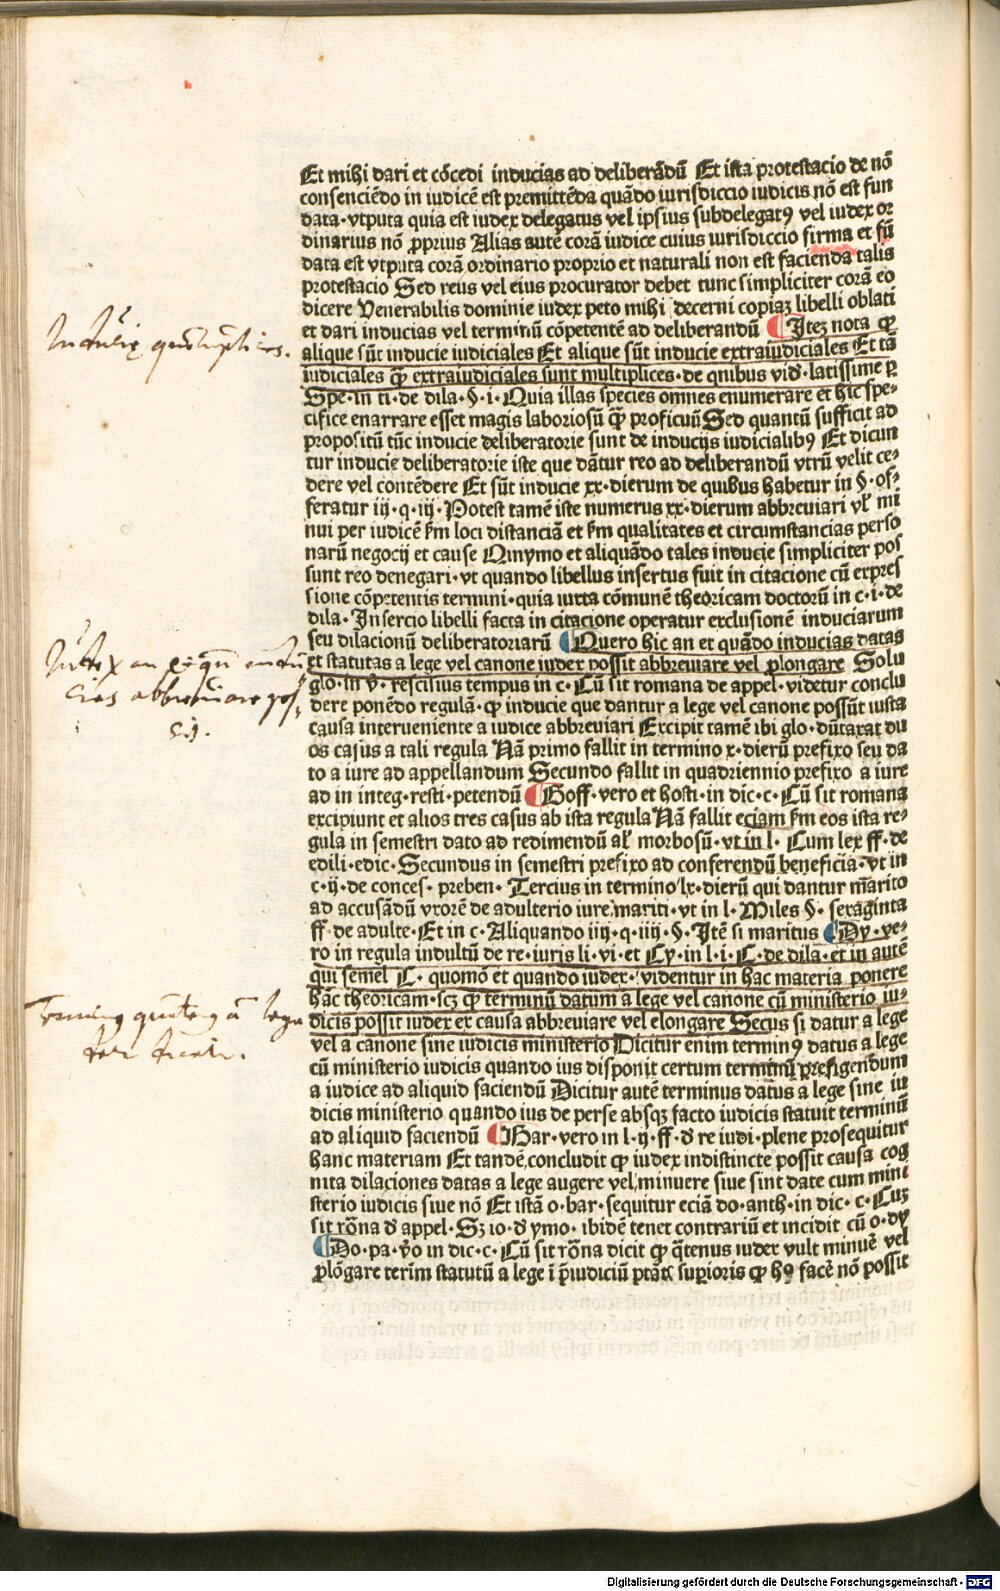 Et mihi dari et cōcedi inducias ad deliberādū Et ista protestacio de nō
consenciēdo in iudicē est premittēda quādo iurisdiccio iudicis nō est fun
data·vtputa quia est iudex delegatus vel ipsius subdelegatꝰ vel iudex or
dinarius nō ꝓprius Alias autē corā iudice cuius iurisdiccio firma et fū
data est vtputa corā ordinario proprio et naturali non est facienda talis
protestacio Sed reus vel eius procurator debet tunc simpliciter corā eo
dicere Venerabilis domine iudex peto mihi decerni copiaꝫ libelli oblati
et dari inducias vel terminū cōpetentē ad deliberandū ¶ Iteꝫ nota ꝙ
alique sūt inducie iudiciales Et alique sūt inducie extraiudiciales Et tā
iudiciales ꝙ̄ extraiudiciales sunt multiplices·de quibus vid̄·latissime ꝑ
Spe·in ti·de dila·§·i·Quia illas species omnes enumerare et hic spe⸗
cifice enarrare esset magis laboriosū ꝙ̄ proficuū Sed quantū sufficit ad
propositū tūc inducie deliberatorie sunt de inducijs iudicialibꝰ Et dicun
tur inducie deliberatorie iste que dātur reo ad deliberandū vtrū velit ce⸗
dere vel contēdere Et sūt inducie xx·dierum de quibus habetur in §·of⸗
feratur iij·q·iij·Potest tamē iste numerus xx·dierum abbreuiari vl̓ mi
nui per iudicē ẜm loci distanciā et ẜm qualitates et circumstancias perso
narū negocij et cause Quinymo et aliquādo tales inducie simpliciter pos
sunt reo denegari·vt quando libellus insertus fuit in citacione cū expres
sione cōpetentis termini·quia iuxta cōmunē theoricam doctorū in c·i·de
dila·Insercio libelli facta in citacione operatur exclusionē induciarum
seu dilacionū deliberatoriarū ¶ Quero hic an et quādo inducias datas
et statutas a lege vel canone iudex possit abbreuiare vel ꝓlongare Solu
glo·in v̄·rescisius tempus in c·Cū sit romana de appel·videtur conclu
dere ponēdo regulā·ꝙ inducie que dantur a lege vel canone possūt iusta
causa interueniente a iudice abbreuiari Excipit tamē ibi glo·dūtaxat du
os casus a tali regula Nā primo fallit in termino x·dierū prefixo seu da
to a iure ad appellandum Secundo fallit in quadriennio prefixo a iure
ad in integ·resti·petendū ¶ Goff·vero et hosti·in dic·c·Cū sit romana
excipiunt et alios tres casus ab ista regula Nā fallit eciam ẜm eos ista re⸗
gula in semestri dato ad redimendū al̓ morbosū·vt in l·Cum lex ff·de
edili·edic·Secundus in semestri prefixo ad conferendū beneficia·vt in
c·ij·de conces·preben·Tercius in termino lx·dierū qui dantur marito
ad accusādū vxorē de adulterio iure mariti·vt in l·Miles §·sexaginta
ff·de adulte·Et in c·Aliquando iiij·q·iiij·§·Itē si maritus ¶ Dy·ve⸗
ro in regula indultū de re·iuris li·vi·et Cy·in l·i·C·de dila·et in autē
qui semel C·quomō et quando iudex·videntur in hac materia ponere
hāc theoricam·scꝫ ꝙ terminū datum a lege vel canone cū ministerio iu⸗
dicis possit iudex ex causa abbreuiare vel elongare Secus si datur a lege
vel a canone sine iudicis ministerio Dicitur enim terminꝰ datus a lege
cū ministerio iudicis quando ius disponit certum terminū prefigendum
a iudice ad aliquid faciendū Dicitur autē terminus datus a lege sine iu
dicis ministerio quando ius de perse absqꝫ facto iudicis statuit terminū
ad aliquid faciendū ¶ Bar·vero in l·ij·ff·d̓ re iudi·plene prosequitur
hanc materiam Et tandē concludit ꝙ iudex indistincte possit causa cog
nita dilaciones datas a lege augere vel minuere siue sint date cum mini
sterio iudicis siue nō Et istā o·bar·sequitur eciā do·anth·in dic·c·Cuꝫ
sit rōna d̓ appel·Sꝫ io·d̓ ymo·ibidē tenet contrariū et incidit cū o·dy
¶ Do·pa·v̓o in dic·c·Cū sit rōna dicit ꝙ q̄tenus iudex vult minuē vel
ꝓlōgare terīm statutū a lege ī p̄iudiciū ptāt̄ suꝑioris ꝙ hº facē nō possit
Digitalisierung gefördert durch die Deutsche Forschungsgemeinschaft · DFG